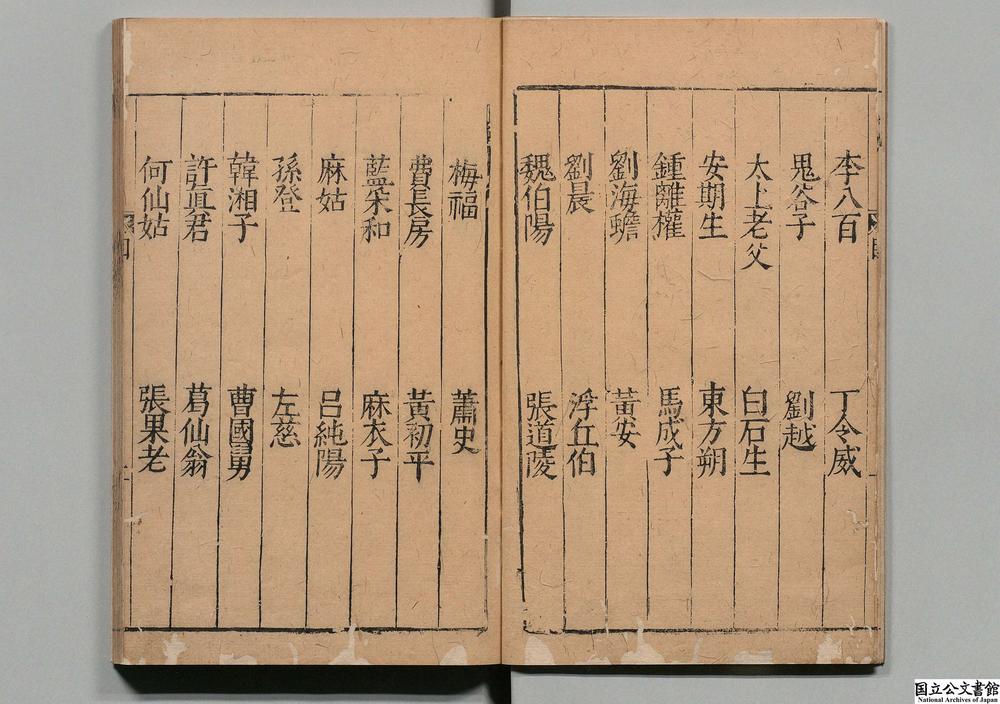 李八百 丁令威
鬼谷子 劉越
太上老父 白石生
安期生 東方朔
鍾離權 馬成子
劉海蟾 黃安
劉晨 浮丘伯
魏伯陽 張道陵
梅福 蕭史
費長房 黃初平
藍采和 麻衣子
麻姑 呂純陽
孫登 左慈
韓湘子 曹國舅
許真君 葛仙翁
何仙姑 張果老
国立公文書館
National Archives of Japan